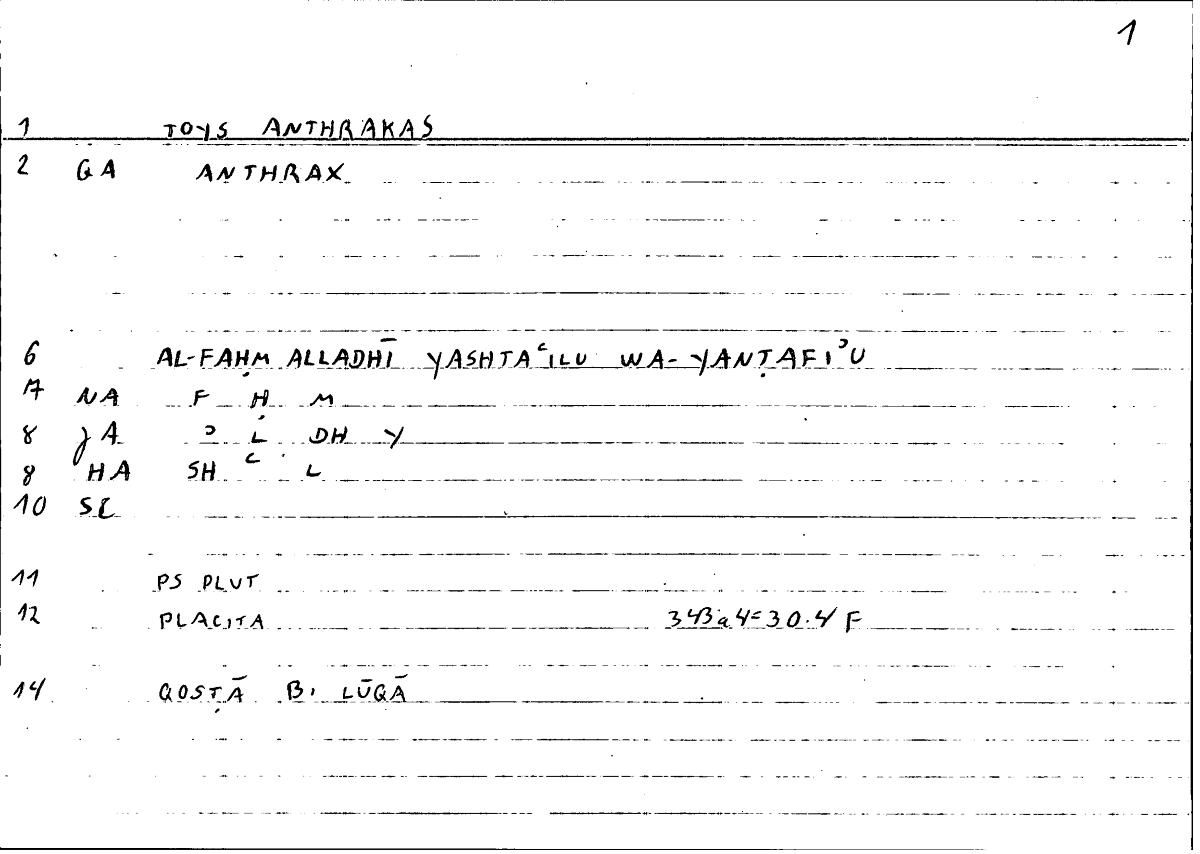 1
1 TOYS ANTHRAKAS
2 GA ANTHRAX
6 AL-FAḤM ALLADHĪ YASHTAʿILU WA-YANṬAFIʾU
7 NA F Ḥ M
8 JA ʾ L DH Y
8 HA SH ʿ L
10 SE
11 PS PLUT
12 PLACITA 343a4=30.4 F
14 QOSṬĀ B. LŪQĀ